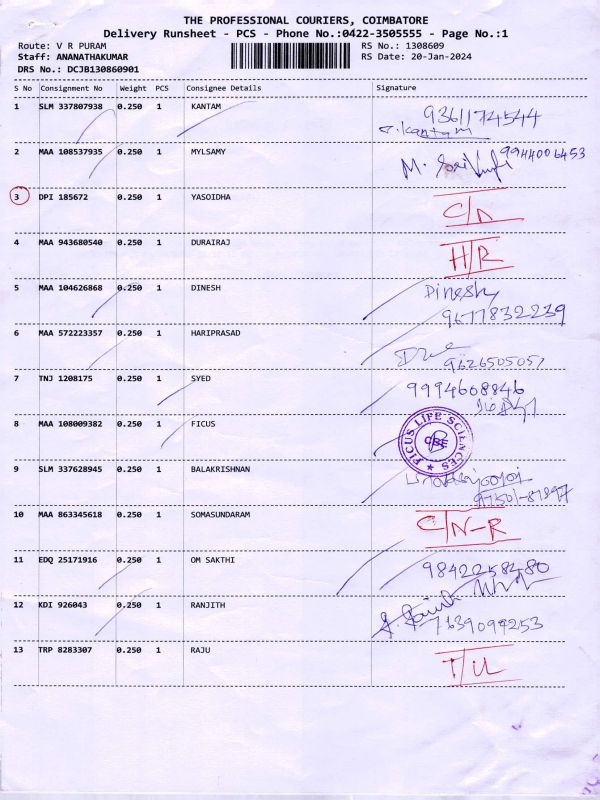 THE PROFESSIONAL COURIERS, COIMBATORE
Delivery Runsheet - PCS - Phone No.:0422-3505555 - Page No.:1
Route: V R PURAM RS No.: 1308609
Staff: ANANATHAKUMAR RS Date: 20-Jan-2024
DRS No.: DCJB130860901
S No Consignment No Weight PCS Consignee Details Signature
1 SLM 337807938 0.250 1 KANTAM 9361174544
Kantam
2 MAA 108537935 0.250 1 MYLSAMY M. 9944006453
3 DPI 185672 0.250 1 YASOIDHA C/N
4 MAA 943680540 0.250 1 DURAIRAJ H/R
5 MAA 104626868 0.250 1 DINESH Dinesh
9677832239
6 MAA 572223357 0.250 1 HARIPRASAD
9626505051
7 TNJ 1208175 0.250 1 SYED 9994608846
8 MAA 108009382 0.250 1 FICUS FICUS LIFE SCIENCES CBE
9 SLM 337628945 0.250 1 BALAKRISHNAN
10 MAA 863345618 0.250 1 SOMASUNDARAM C/N-R
11 EDQ 25171916 0.250 1 OM SAKTHI 9842258480
12 KDI 926043 0.250 1 RANJITH
7639094253
13 TRP 8283307 0.250 1 RAJU T/UL